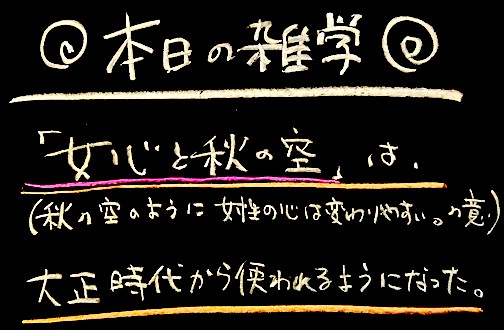 @本日の雑学@
「女心と秋の空」は、
(秋の空のように女性の心は変わりやすい。の意)
大正時代から使われるようになった。